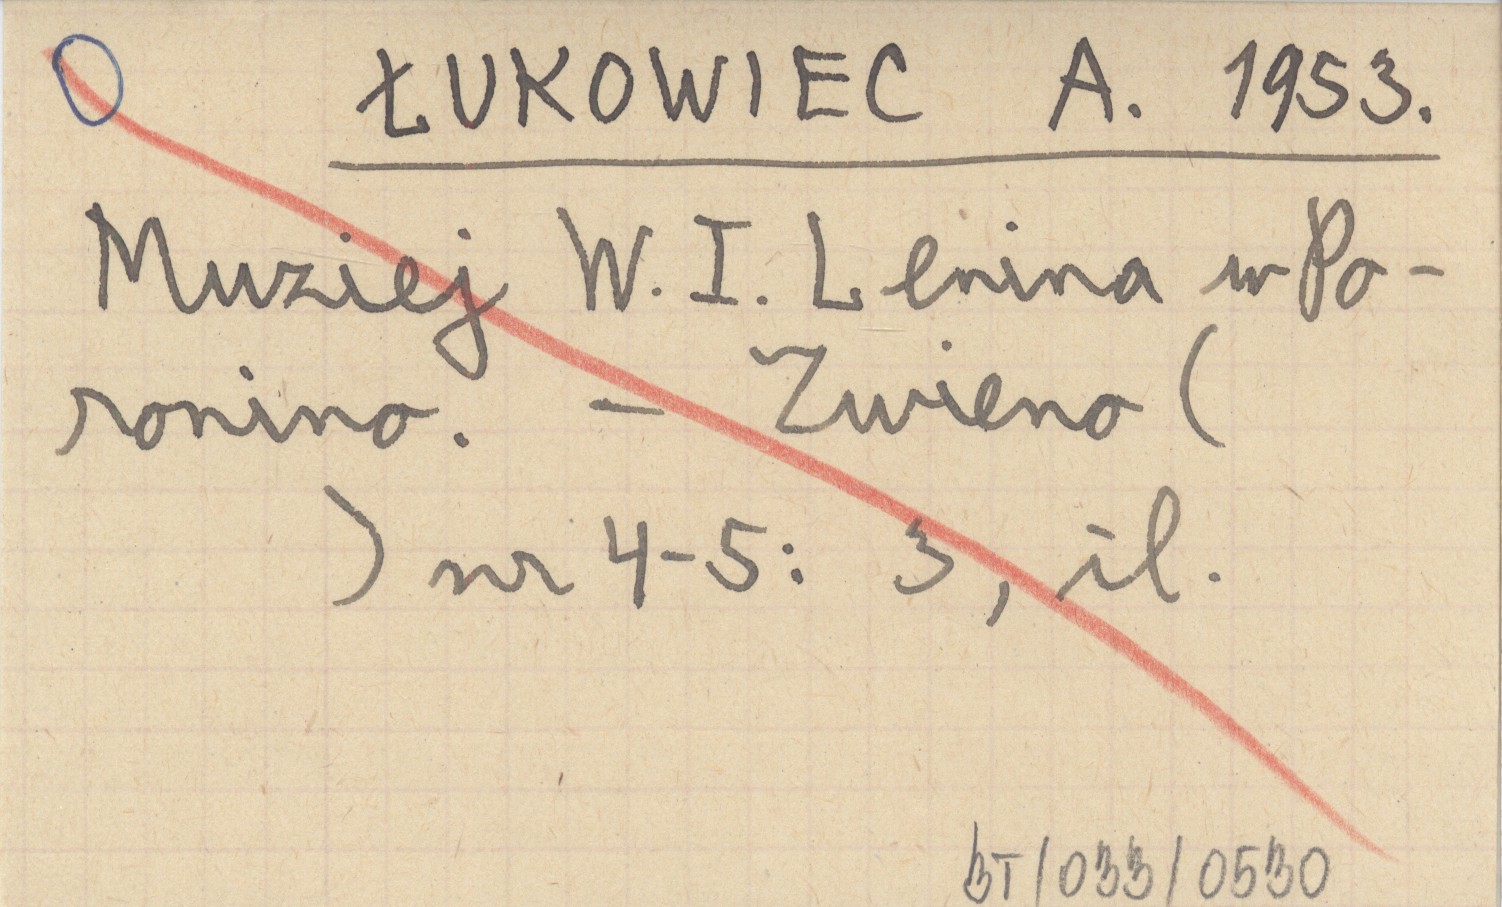 ŁUKOWIEC A. 1953.
Muziej W. I. Lenina w Po-
ronino. - Zwieno (
) nr 4-5: 3, il.
BT/033/0530